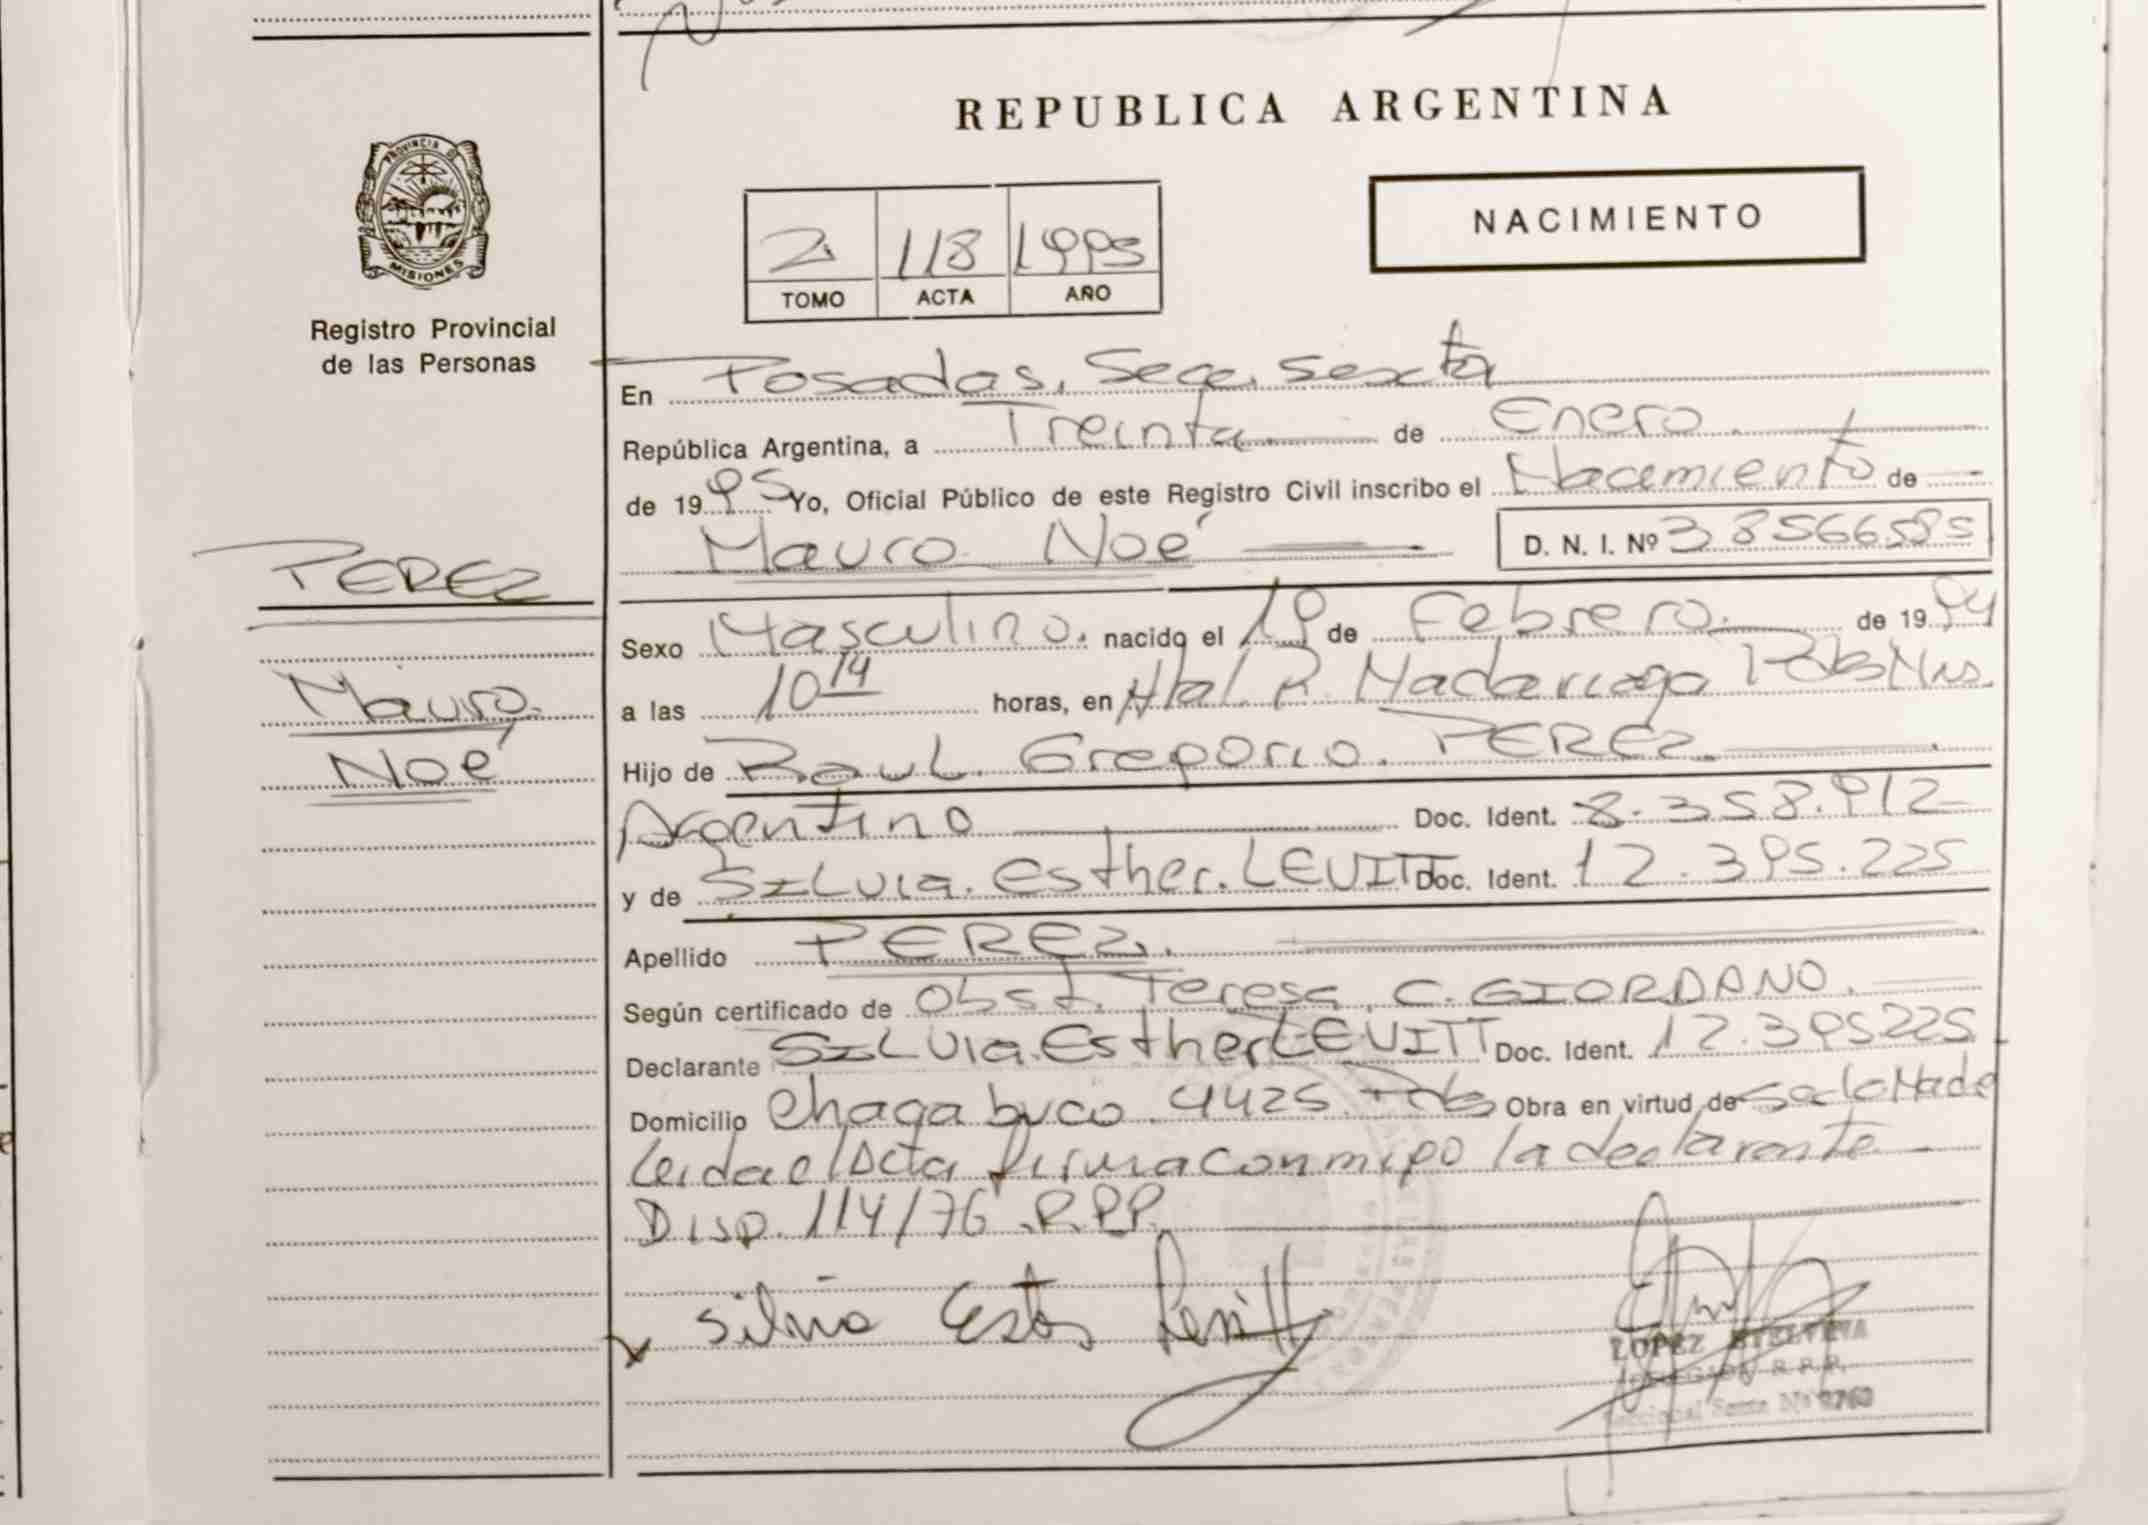 REPUBLICA ARGENTINA
PROVINCIA DE
MISIONES
Registro Provincial
de las Personas
NACIMIENTO
2 118 1995
TOMO ACTA AÑO
En Posadas, Secc. sexta
República Argentina, a Treinta de Enero
de 1995 Yo, Oficial Público de este Registro Civil inscribo el Nacimiento de
Mauro Noé D. N. I. Nº 38566585
PEREZ
Mauro
Noé
Sexo Masculino. nacido el 19 de Febrero. de 1994
a las 10 14 horas, en Htal. R. Madariaga Pdas Mnes.
Hijo de Raul. Gregorio. PEREZ.
Argentino Doc. Ident. 8.358.912
y de SILVIA. Esther. LEVITT Doc. Ident. 12.395.225
Apellido PEREZ.
Según certificado de Obst. Teresa C. GIORDANO.
Declarante SILVIA. Esther LEVITT Doc. Ident. 12.395225
Domicilio Chacabuco. 4425. Pdas Obra en virtud de
Leida el Acta firma conmigo la declarante
Disp. 114/76 R.P.P.
Silvia Ester Levitt
LOPEZ ETELVINA
DELEGADA R.P.P.
Seccional Sexta Nº 2760